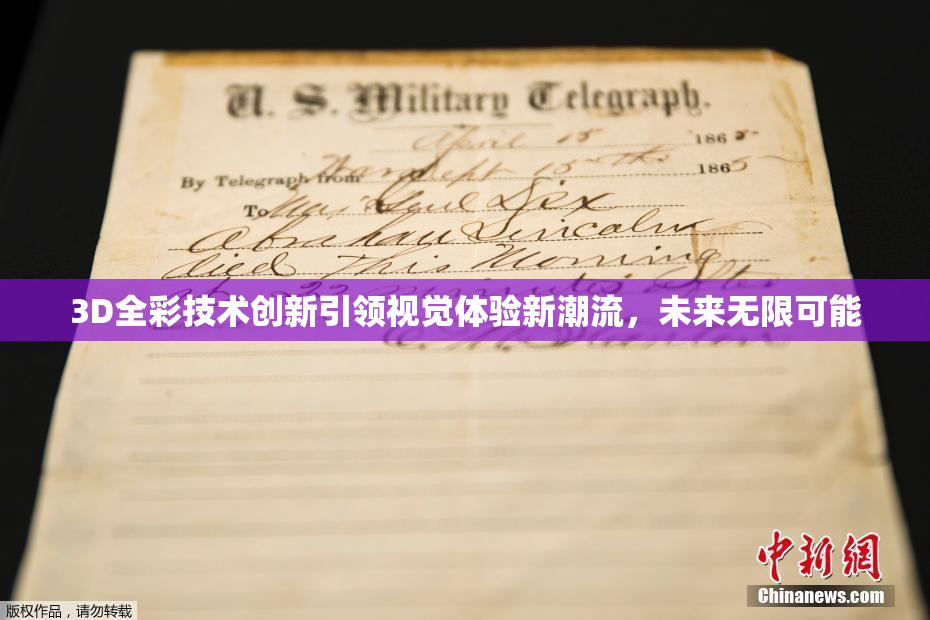 U. S. Military Telegraph.
April 15 1865
By Telegraph from War Dept 15th 1865
To Maj Genl Dix
Abraham Lincoln
died This Morning
at 22 minutes after
3D全彩技术创新引领视觉体验新潮流，未来无限可能
E. M. Stanton
中新网
Chinanews.com
版权作品，请勿转载